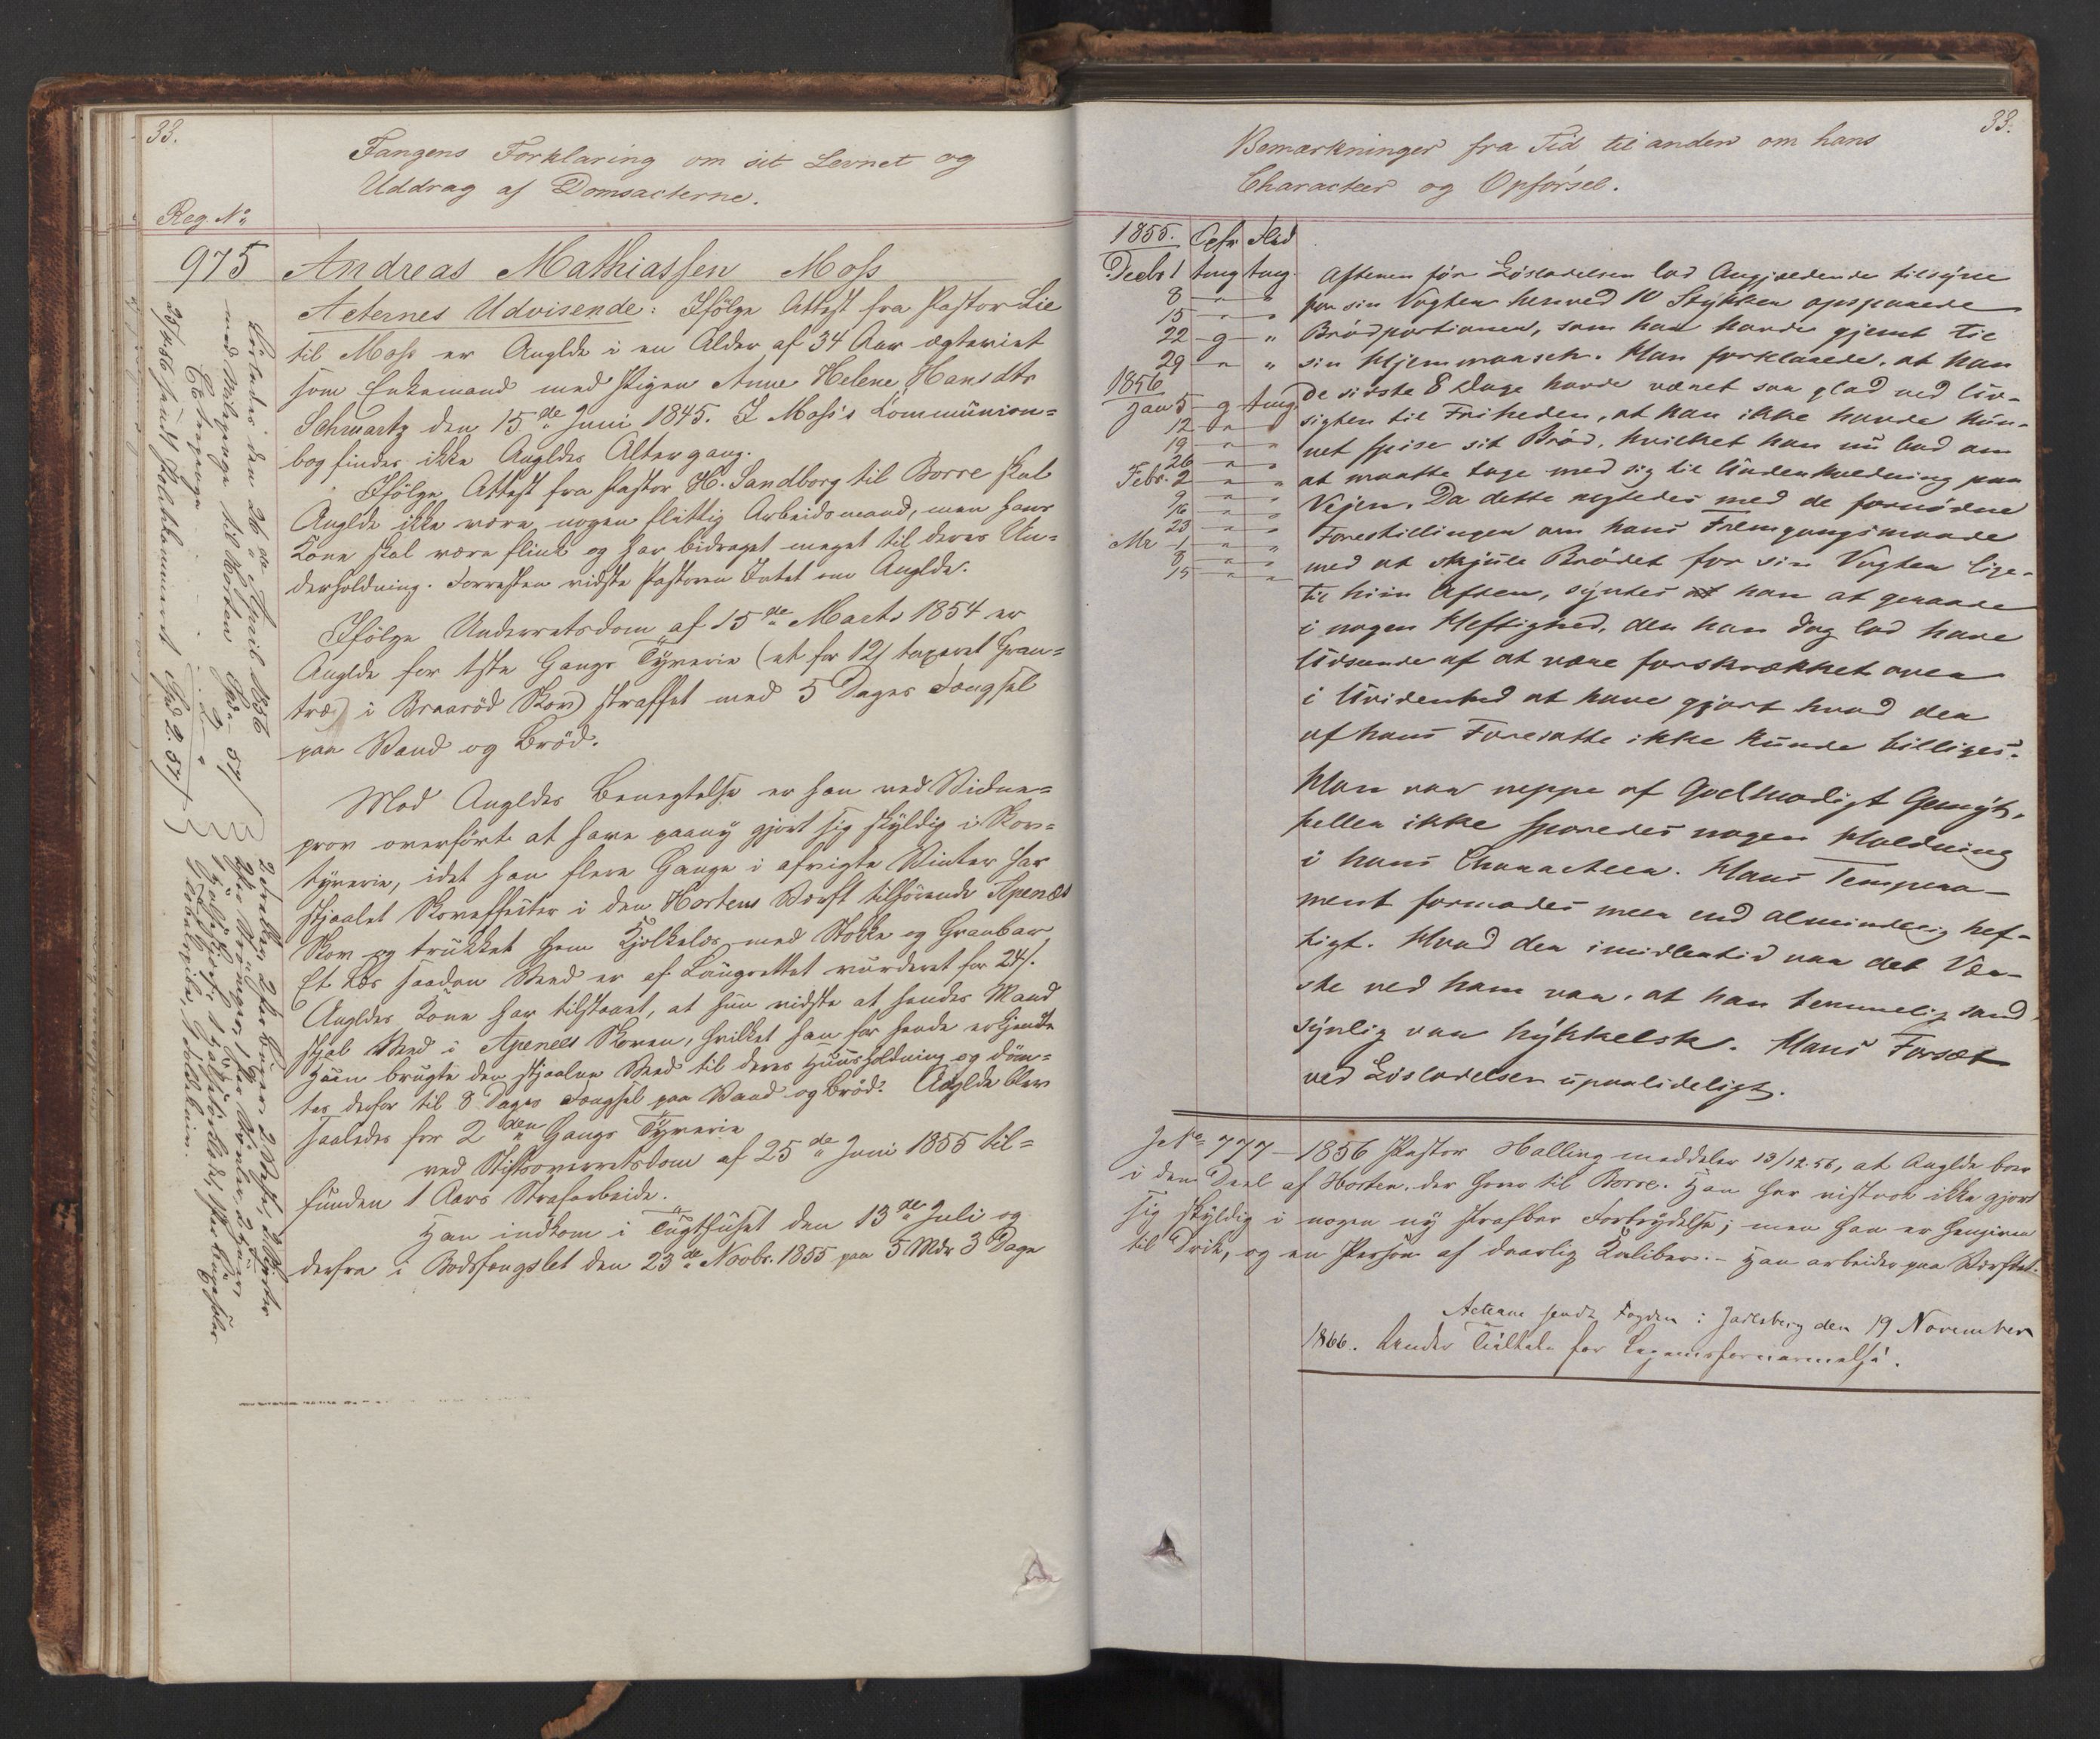 33.
Fangens Forklaring om sit Levnet og
Uddrag af Domsacterne.
Reg. No
975 Andreas Mathiassen Moss
Acternes Udvisende: Ifölge Attest fra Pastor Lie
til Moss er Anglde i en Alder af 34 Aar ægteviet
som Enkemand med Pigen Anne Helene Hansdtr
Schwartz den 15de Juni 1845. I Moss's Kommunion-
bog findes ikke Angldes Altergang.
Ifölge Attest fra Pastor H. Sandborg til Borre skal
Anglde ikke være nogen flittig Arbeidsmand, men hans
Kone skal være flink og har bidraget meget til deres Un-
derholdning. Forresten vidste Pastoren Intet om Anglde.
Ifölge Underretsdom af 15de Marts 1854 er
Anglde for 1ste Gangs Tyverie (et for 12 s taxeret Gran-
træ i Braaröd Skov) straffet med 5 Dages Fængsel
paa Vand og Bröd.
Mod Angldes Benegtelse er han ved Vidne-
prov overfört at have paany gjort sig skyldig i Skov-
tyverie, idet han flere Gange i afvigte Vinter har
stjaalet Skoveffecter i den Hortens Værft tilhörende Apenæs
Skov og trukket hem Kjelkelæs med Stokke og Granbar
Et Læs saadan Ved er af Laugrettet vurderet for 24 s.
Angldes Kone har tilstaaet, at hun vidste at hendes Mand
stjal Ved i Apenæs Skoven, hvilket han for hende erkjendte
Hun brugte den stjaalne Ved til deres Huusholdning og döm-
tes derfor til 8 Dages Fængsel paa Vand og Bröd. Anglde blev
saaledes for 2den Gangs Tyverie
ved Stiftsoverretsdom af 25de Juni 1855 til-
funden 1 Aars Strafarbeide.
Han indkom i Tugthuset den 13de Juli og
derfra i Bodsfængslet den 23de Novbr. 1855 paa 5 Mdr 3 Dage
Löslades den 26de April 1856
med Reisepenge til Horten Spd. - 57
Extrapenge
25/4.56 sendt Politikammeret Spd 2. 57
33.
Bemærkninger fra Tid til anden om hans
Characteer og Opförsel.
1855. Opfr Flid
Decbr 1 tmg tmg
8 " "
15 " "
22 g "
29 " "
1856
Jan 5 g tmg
12 " "
19 " "
26 " "
Febr. 2 " "
9 " "
16 " "
23 " "
Mr 1 " "
8 " "
15 " "
Aftenen för Lösladelsen lod Angjældende tilsyne
for sin Vogter henved 10 Stykker opsparede
Brödportioner, som han havde gjemt til
sin Hjemmarsch. Han forklarede, at han
de sidste 8 Dage havde været saa glad ved Ud-
sigten til Friheden, at han ikke havde kun-
net spise sit Bröd, hvilket han nu bad om
at maatte tage med sig til Underholdning paa
Vejen. Da dette negtedes med de fornödne
Forestillinger om hans Fremgangsmaade
med at skjule Brödet for sin Vogter lige-
til hiin Aften, syntes han at geraade
i nogen Heftighed, den han dog lod have
Udseende af at være forskrækket over
i Uvidenhed at have gjort hvad der
af hans Foresatte ikke kunde billiges.
Han var neppe af godmodigt Gemyt,
heller ikke sporedes nogen Holdning
i hans Characteer. Hans Tempera-
ment formodes meer end almindelig hef-
tigt. Hvad der imidlertid var det Vær-
ste ved ham var, at han temmelig sand-
synlig var hykkelsk. Hans Forsæt
ved Lösladelsen upaalideligt.
J No 777 - 1856 Pastor Halling meddeler 13/12.56, at Anglde boer
i den Deel af Horten, der hörer til Borre. Han har vistnok ikke gjort
sig skyldig i nogen ny strafbar Forbrydelse; men han er hengiven
til Drik, og en Person af daarlig Kaliber. - Han arbeider paa Værftet.
Acterne sendt Fogden i Jarlsberg den 19 November
1866. Under Tiltale for Legemsfornærmelse.